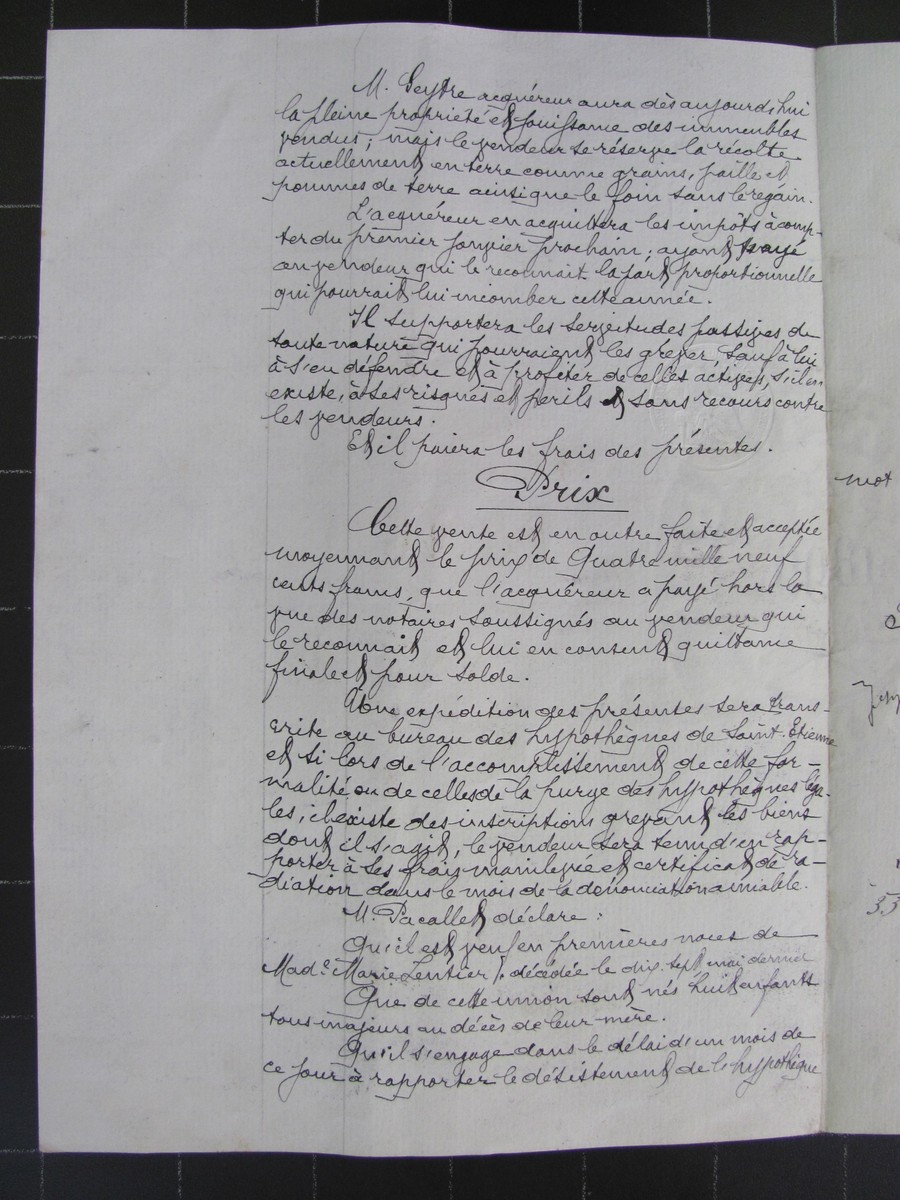 M. Seytre acquéreur aura dès aujourd'hui
la pleine propriété et jouissance des immeubles
vendus ; mais le vendeur se réserve la récolte
actuellement en terre comme grains, paille et
pommes de terre ainsi que le foin sans le regain.
L'acquéreur en acquittera les impôts à comp-
ter du premier Janvier prochain ; ayant payé
au vendeur qui le reconnait la part proportionnelle
qui pourrait lui incomber cette année.
Il supportera les servitudes passives de
toute nature qui pourraient les grever sauf à lui
à s'en défendre et à profiter de celles actives, s'il en
existe, à ses risques et périls et sans recours contre
les vendeurs.
Et il paiera les frais des présentes.
Prix
Cette vente est en outre faite et acceptée
moyennant le prix de Quatre mille neuf
cents francs, que l'acquéreur a payé hors la
vue des notaires soussignés au vendeur qui
le reconnait et lui en consent quittance
finale et pour solde.
Une expédition des présentes sera trans-
crite au bureau des hypothèques de Saint-Etienne
et si lors de l'accomplissement de cette for-
malité ou de celles de la purge des hypothèques léga-
les, il existe des inscriptions grevant les biens
dont il s'agit, le vendeur sera tenu d'en rap-
porter à ses frais mainlevée et certificat de ra-
diation dans le mois de la dénonciation amiable.
M. Pacallet déclare :
Qu'il est veuf en premières noces de
Mad.e Marie décédée le dix sept mai dernier
Que de cette union sont nés huit enfants
tous majeurs au décès de leur mère.
Qu'il s'engage dans le délai d'un mois de
ce jour à rapporter le désistement de l'hypothèque
mot
33